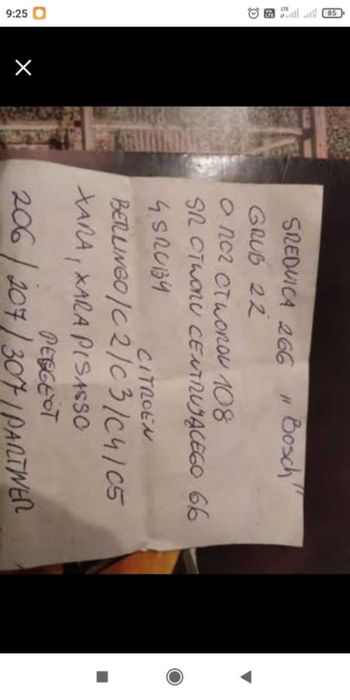 9:25
LTE
85
SREDNICA 266 "Bosch"
GRUB 22
O ROZ OTWOROW 108
SR OTWORU CENTRUJĄCEGO 66
4 SRUBY
CITROËN
BERLINGO/C2/C3/C4/C5
XARA, XARA PISASSO
PEGEOT
206/207/307/PARTNER